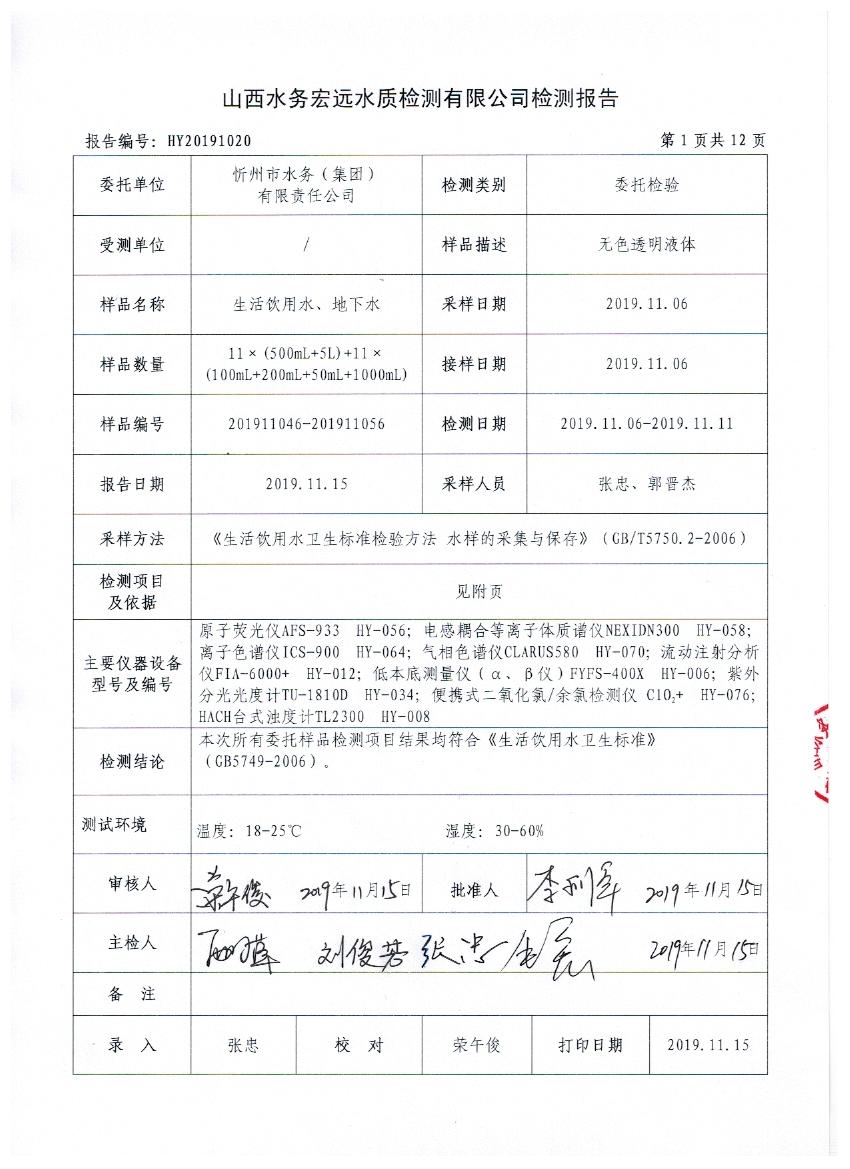 山西水务宏远水质检测有限公司检测报告
报告编号：HY20191020 第 1 页共 12 页
委托单位 忻州市水务（集团）有限责任公司 检测类别 委托检验
受测单位 / 样品描述 无色透明液体
样品名称 生活饮用水、地下水 采样日期 2019.11.06
样品数量 11×(500mL+5L)+11×(100mL+200mL+50mL+1000mL) 接样日期 2019.11.06
样品编号 201911046-201911056 检测日期 2019.11.06-2019.11.11
报告日期 2019.11.15 采样人员 张忠、郭晋杰
采样方法 《生活饮用水卫生标准检验方法 水样的采集与保存》（GB/T5750.2-2006）
检测项目及依据 见附页
主要仪器设备型号及编号
原子荧光仪AFS-933 HY-056；电感耦合等离子体质谱仪NEXIDN300 HY-058；
离子色谱仪ICS-900 HY-064；气相色谱仪CLARUS580 HY-070；流动注射分析
仪FIA-6000+ HY-012；低本底测量仪（α、β仪）FYFS-400X HY-006；紫外
分光光度计TU-1810D HY-034；便携式二氧化氯/余氯检测仪 ClO₂+ HY-076；
HACH台式浊度计TL2300 HY-008
检测结论
本次所有委托样品检测项目结果均符合《生活饮用水卫生标准》
（GB5749-2006）。
测试环境 温度：18-25℃ 湿度：30-60%
审核人 荣午俊 2019年11月15日 批准人 2019年11月15日
主检人 刘俊芬 张忠 2019年11月15日
备 注
录 入 张忠 校 对 荣午俊 打印日期 2019.11.15